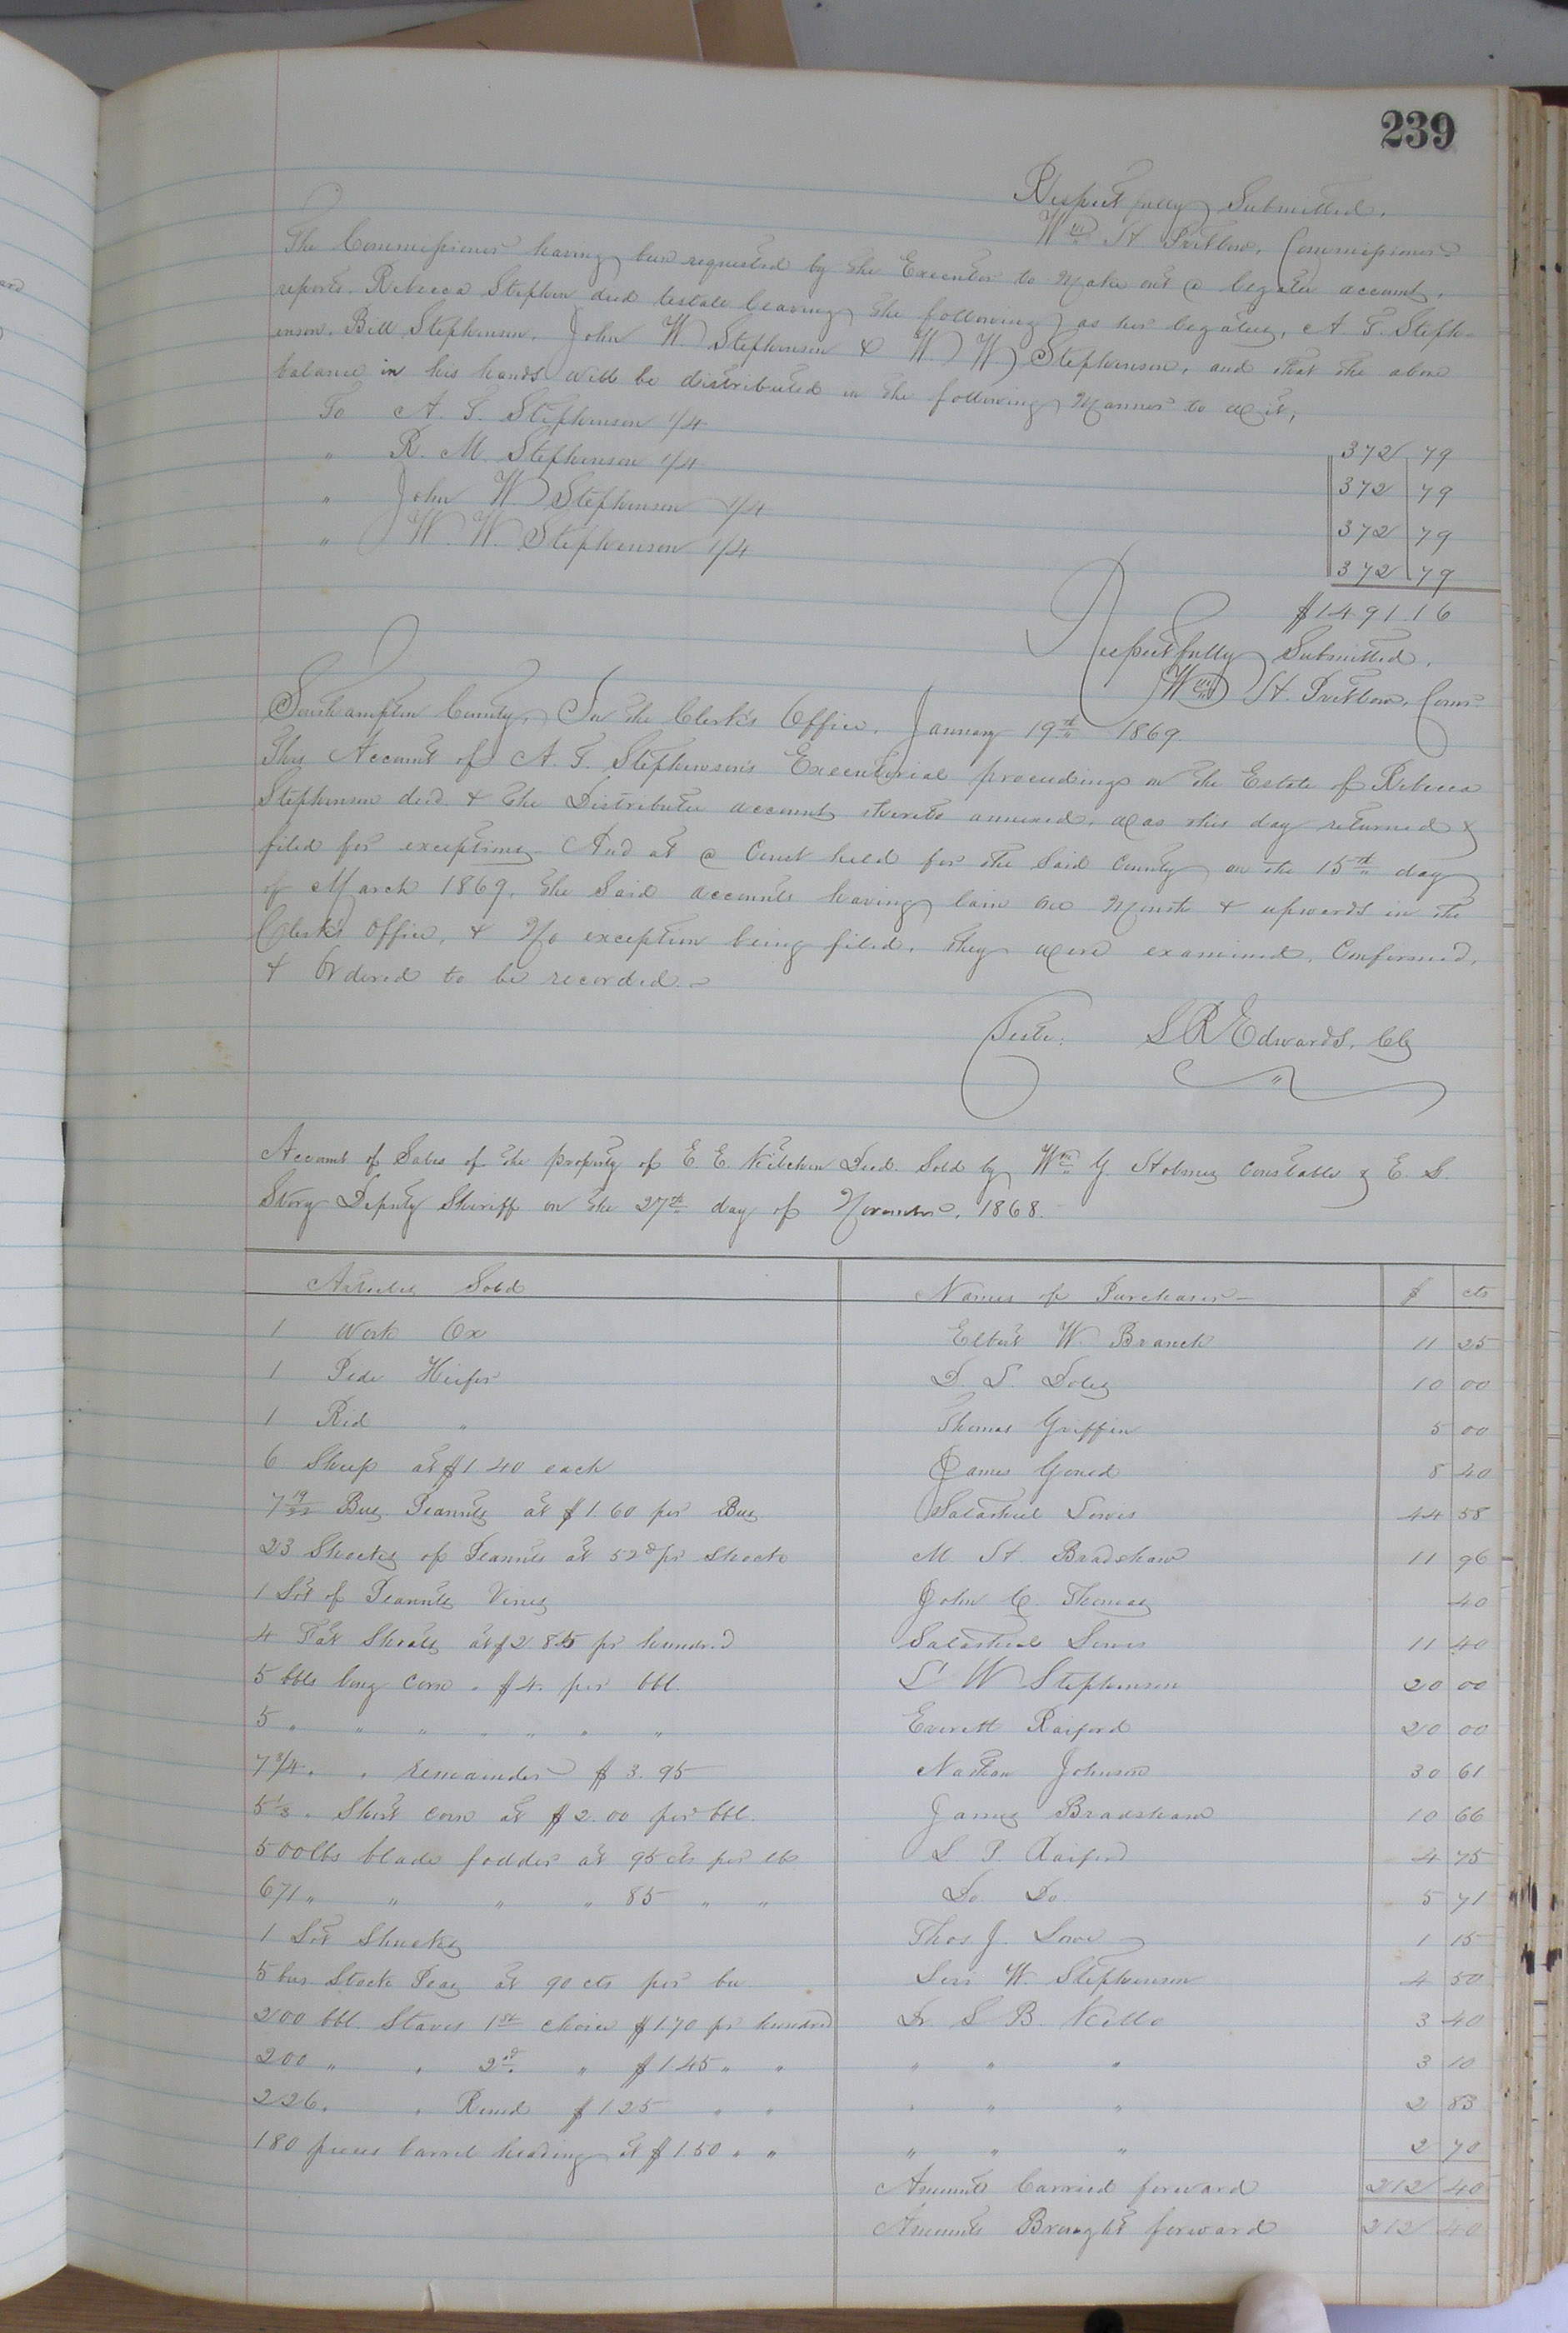 239
Respectfully Submitted.
Wm H. Pretlow, Commissioner
The Commissioner having been requested by the Executor to make out a legatee account,
reports. Rebecca Stephen died testate leaving the following as her legatees, A. T. Steph-
enson. Bell Stephenson. John W. Stephenson & W. W. Stephenson, and that the above
balance in his hands will be distributed in the following manner to wit,
To A. T. Stephenson 1/4 372 79
" R. M. Stephenson 1/4 372 79
" John W Stephenson 1/4 372 79
" W. W. Stephenson 1/4 372 79
$1491.16
Respectfully Submitted.
Wm H. Pretlow, Comr
Southampton County, In the Clerk's Office. January 19th 1869.
This Account of A. T. Stephenson's Executorial proceedings on the Estate of Rebecca
Stephenson decd. & the Distributee account thereto annexed, was this day returned &
filed for exceptions. And at a Court held for the said County on the 15th day
of March 1869, the said accounts having lain one month & upwards in the
Clerk's Office, & No exception being filed. they were examined, Confirmed,
& Ordered to be recorded.
Teste: L R Edwards, CC
Account of Sales of the property of E. E. Kitchen Decd. Sold by Wm G Holmes Constable & E. S.
Story Deputy Sheriff on the 27th day of November, 1868.
Articles Sold Names of Purchaser $ cts
1 Work Ox Elbert W. Branch 11 25
1 Pide Heifer D. L. Doles 10 00
1 Red " Thomas Griffin 5 00
6 Sheep at $1.40 each James 8 40
Bus. Peanuts at $1.60 per Bus Salathiel 44 58
23 Shocks of Peanuts at 52 pr Shock M. H. Bradshaw 11 96
1 Lot of Peanuts Vines John C. Thomas 40
4 Fat Shoats at $2.85 pr hundred Salathiel 11 40
5 bbls long Corn . $4. per bbl. L W Stephenson 20 00
5 " " " " " " " Everett Raiford 20 00
7 3/4 " " remainder $3.95 Nathan Johnson 30 61
5 1/3 " Short corn at $2.00 per bbl. James Bradshaw 10 66
500 lbs blade fodder at 95 cts per lb L. P. Raiford 4 75
671 " " " " 85 " " Do. Do. 5 71
1 Lot Shucks Thos J. 1 15
5 bus Stock Peas at 90 cts per bu W. Stephenson 4 50
200 bbl. Staves 1st choice $1.70 pr hundred Dr S B. Kello 3 40
200 " " 2d " $1.45 " " " " " 3 10
226 " " $1.25 " " " " " 2 83
180 pieces barrel heading at $1.50 " " " " " 2 70
Amounts Carried forward 212 40
Amounts Brought forward 212 40